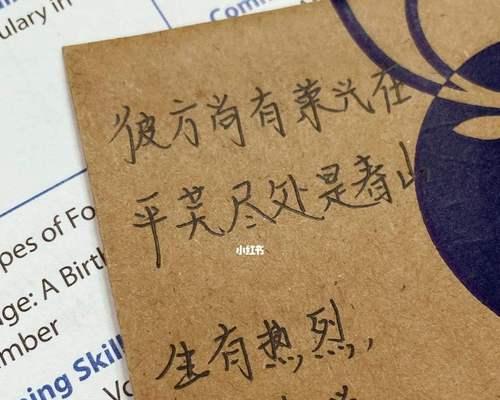 ulary in
彼方尚有荣光在
平芜尽处是春山
小红书
生有热烈,
pes of Fo
ge: A Birth
mber
ning Skill